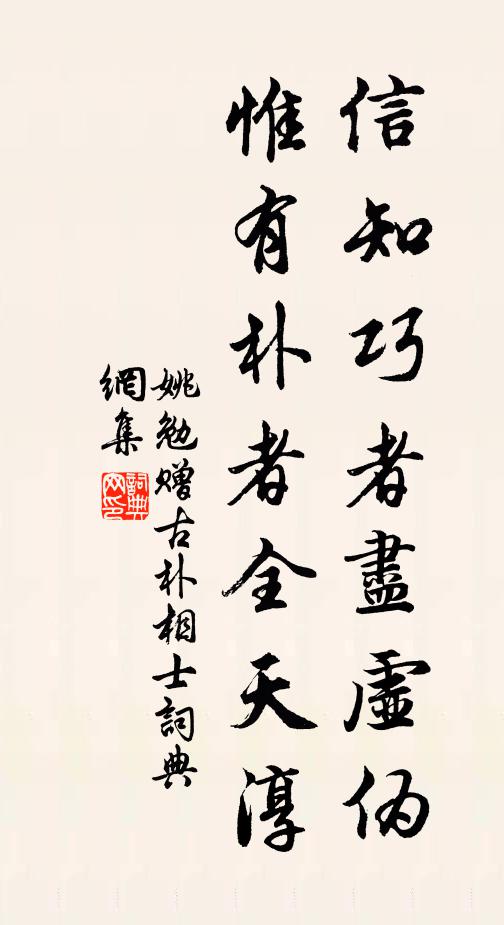 信知巧者盡虛偽
惟有朴者全天淳
姚勉贈古朴相士詞典
網集
詞典網印